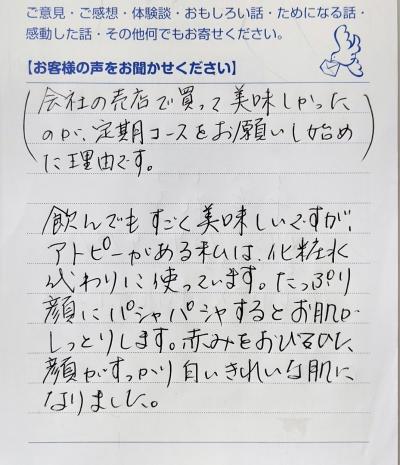 ご意見・ご感想・体験談・おもしろい話・ためになる話・
感動した話・その他何でもお寄せください。
【お客様の声をお聞かせください】
(会社の売店で買って美味しかった
のが、定期コースをお願いし始め
た理由です。)
飲んでもすごく美味しいですが、
アトピーがある私は、化粧水
代わりに使っています。たっぷり
顔にパシャパシャするとお肌が
しっとりします。赤みをおびるひた、
顔がすっかり白いきれいな肌に
なりました。